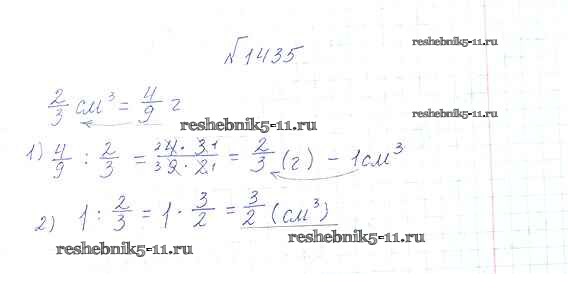 №1435
reshebnik5-11.ru
2/3 см³ = 4/9 г
reshebnik5-11.ru
reshebnik5-11.ru
1) 4/9 : 2/3 = 4·3/9·2 = 2/3 (г) – 1 см³
2) 1 : 2/3 = 1 · 3/2 = 3/2 (см³)
reshebnik5-11.ru
reshebnik5-11.ru